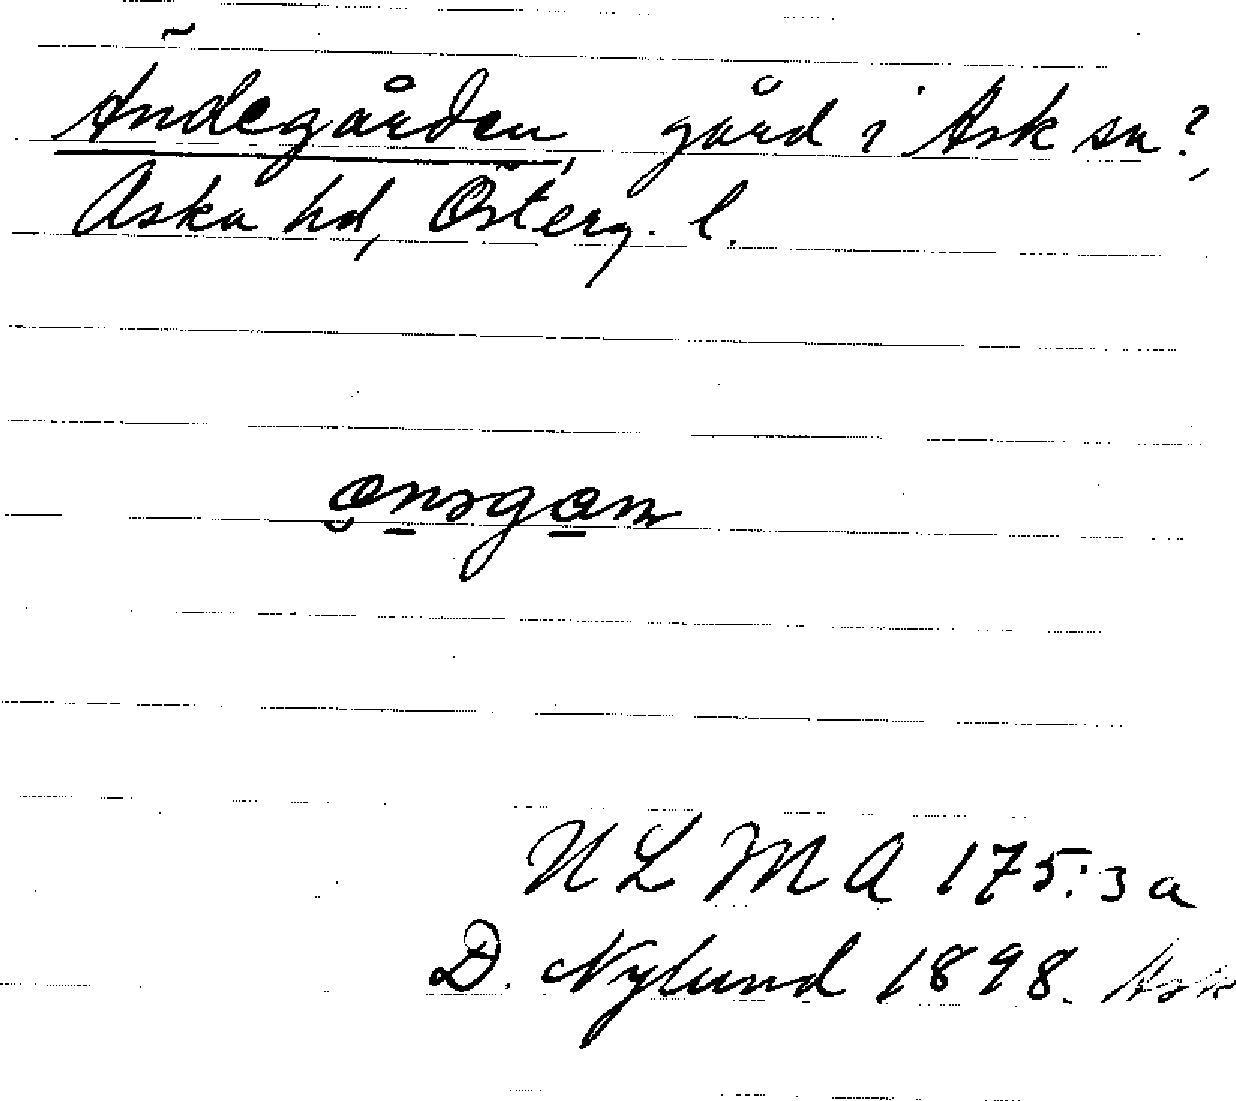 Ändegården, gård i Ask sn?,
Aska hd, Österg. l.
ULMA 175:3a
D. Nylund 1898. Ask